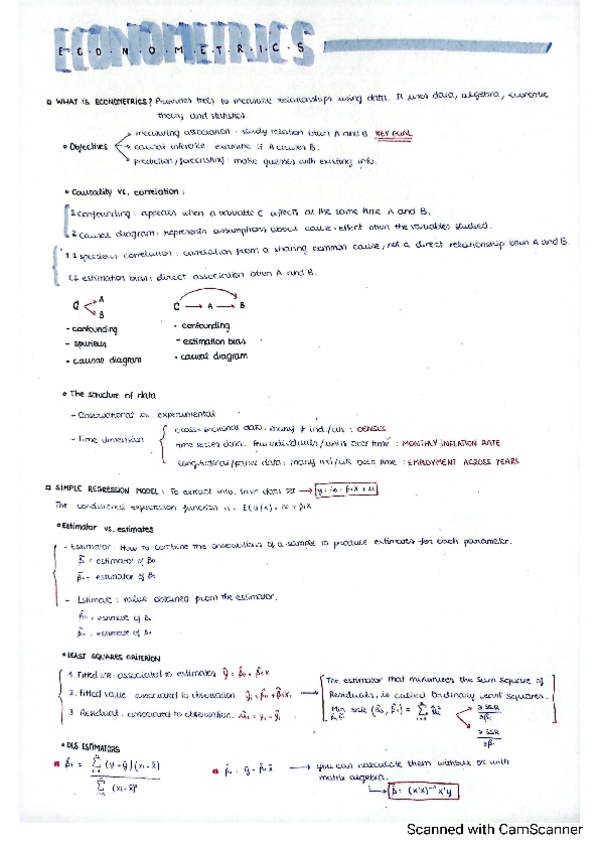 ECONOMETRICS
E.C.O.N.O.M.E.T.R.I.C.S
WHAT IS ECONOMETRICS? Provides tools to measure relationships using data. It uses data, algebra, economic
theory and statistics.
• Objectives
measuring association: study relation btwn A and B KEY GOAL
causal inference: examine if A causes B.
prediction/forecasting: make guesses with existing info.
• Causality vs. correlation:
1. confounding: appears when a variable C affects at the same time A and B.
2. causal diagram: represents assumptions about cause-effect btwn the variables studied.
1.1 spurious correlation: correlation from a sharing common cause, not a direct relationship btwn A and B.
1.2 estimation bias: direct association btwn A and B.
C A B
C → A → B
- confounding
- spurious
- causal diagram
• confounding
- estimation bias
• causal diagram
• The structure of data
- Observational vs. experimental
- Time dimension
cross-sectional data: many ≠ ind./uts: CENSUS
time series data: few individuals/units over time: MONTHLY INFLATION RATE
Longitudinal/panel data: many ind/uts over time: EMPLOYMENT ACROSS YEARS
SIMPLE REGRESSION MODEL: To extract info. from data set →
The conditional expression function is:
• Estimator vs. estimates
- Estimator: How to combine the observations of a sample to produce estimates for each parameter.
= estimator of β₀
= estimator of β₁
- Estimate: value obtained from the estimator.
= estimate of β₀
= estimate of β₁
• LEAST SQUARES CRITERION
1. Fitted line: associated to estimates ŷ = β̂₀ + β̂₁x
2. Fitted value: associated to observation ŷᵢ = β̂₀ + β̂₁xᵢ
3. Residual: associated to observation. ûᵢ = yᵢ - ŷᵢ
The estimator that minimizes the sum square of
Residuals, is called Ordinary Least Squares.
Min SSR (β̂₀, β̂₁) = Σ ûᵢ²
∂SSR
∂SSR
• OLS ESTIMATORS
you can calculate them without or with
matrix algebra.
β̂ = (x'x)⁻¹ x'y
Scanned with CamScanner